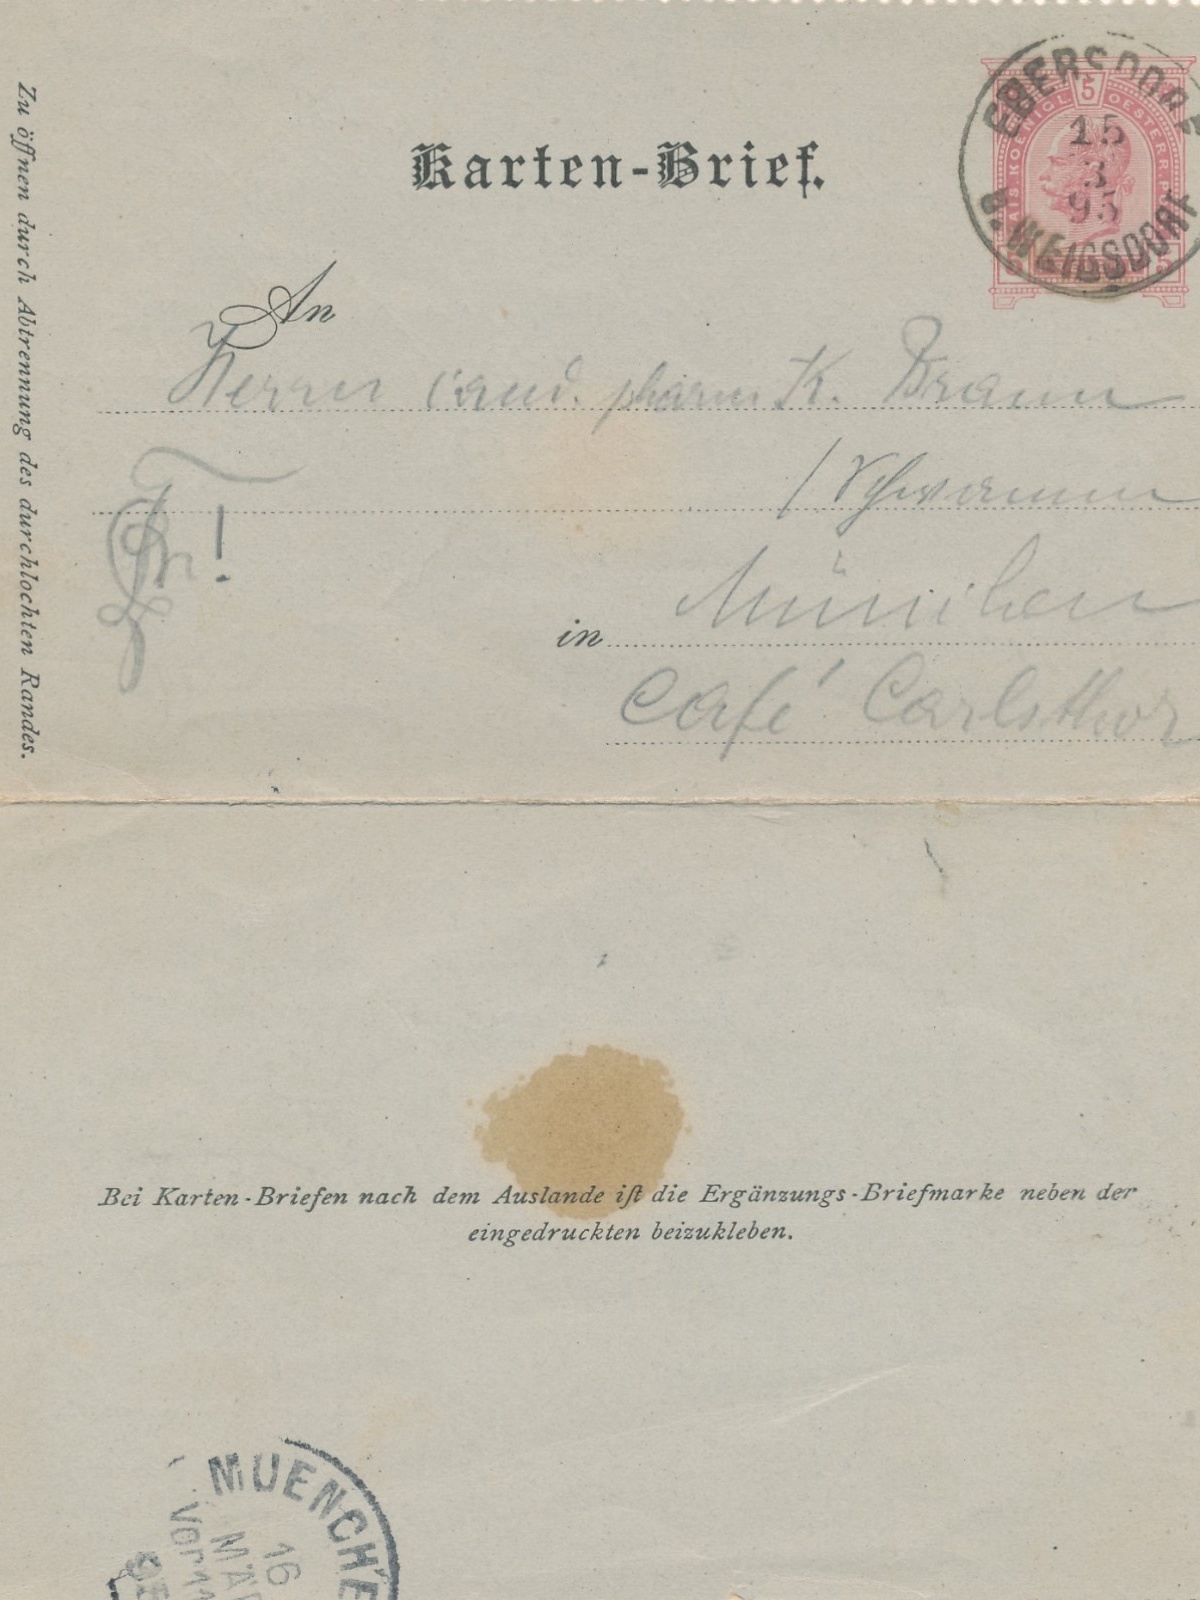 Karten-Brief.
EBERSDORF
15
3
95
b. WEIGSDORF
5
KAIS. KOENIGL. OESTERR. P
5 5
Zu öffnen durch Abtrennung des durchlochten Randes.
An
Herrn cand. pharm K. Braun
München
in
Café Carlsthor
Bei Karten-Briefen nach dem Auslande ist die Ergänzungs-Briefmarke neben der
eingedruckten beizukleben.
MUENCHE
16
MÄR
Vor 11
95